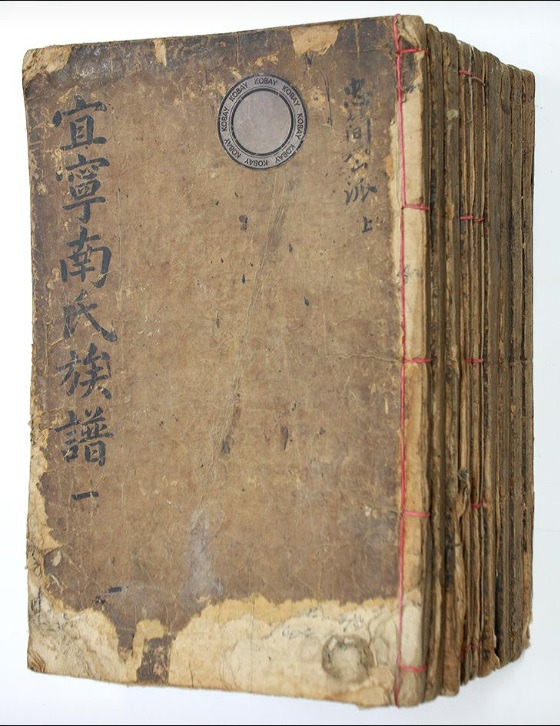 忠簡公派 上
宜寧南氏族譜 一
KOBAY KOBAY KOBAY KOBAY KOBAY KOBAY KOBAY KOBAY